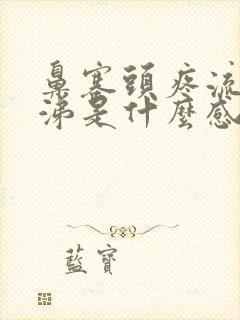 鼻塞頭疼流
涕是什麼感
藍寶